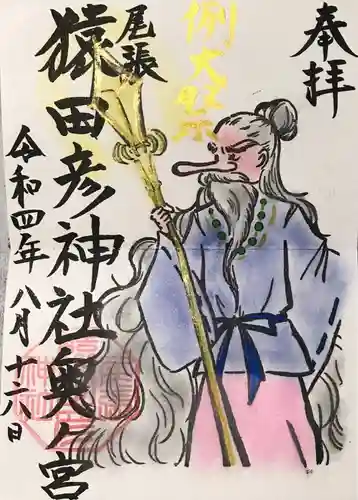 奉拝
例大祭
尾張
猿田彦神社奥ヶ宮
令和四年八月十六日